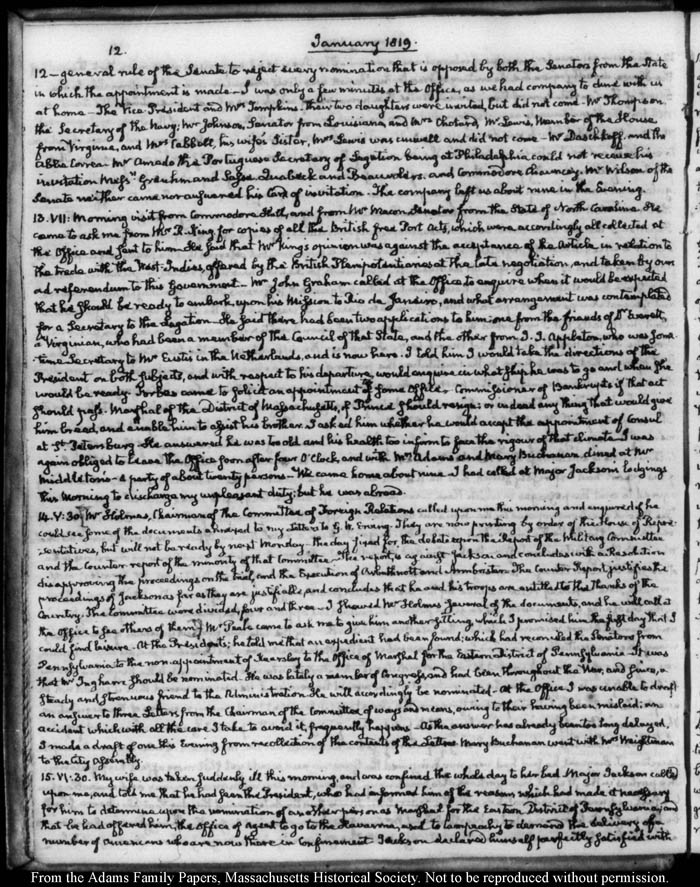 12.
January 1819.
12 — general rule of the Senate to reject every nomination that is opposed by both the Senators from the State
in which the appointment is made — I was only a few minutes at the Office, as we had company to dine with us
at home — The Vice President and Mrs Tompkins, their two daughters were invited, but did not come — Mr Thompson
the Secretary of the Navy; Mr Johnson, Senator from Louisiana, and Mrs Chotard, Mr Lewis, Member of the House
from Virginia, and Mrs Cabbell, his wife's Sister, Mrs Lewis was unwell and did not come — Mr Daschkoff, and the
Abbé Correa. Mr Amado the Portuguese Secretary of Legation being at Philadelphia could not receive his
invitation Messrs Greuhm and and Commodore Chauncey. Mr Wilson of the
Senate neither came nor answered his Card of invitation. The company left us about nine in the Evening.
13. VII: Morning visit from Commodore Hull, and from Mr Macon, Senator from the State of North Carolina. He
came to ask me from Mr R. King for copies of all the British free Port Acts, which were accordingly all collected at
the Office and sent to him. He said that Mr King's opinion was against the acceptance of the Article in relation to
the trade with the West-Indies, offered by the British Plenipotentiaries at the late negotiation, and taken by our
ad referendum to this Government — Mr John Graham called at the Office to enquire when it would be expected
that he should be ready to embark, upon his Mission to Rio de Janeiro, and what arrangement was contemplated
for a Secretary to the Legation. He said there had been two applications to him; one from the friends of Dr Everett,
a Virginian, who had been a member of the Council of that State, and the other from J. J. Appleton, who was some
time Secretary to Mr Eustis in the Netherlands, and is now here. I told him I would take the directions of the
President on both subjects, and with respect to his departure, would enquire in what ship he was to go and when she
would be ready. Forbes came to solicit an appointment of some Office. Commissioner of Bankrupts if that act
should pass. Marshal of the District of Massachusetts, if Prince should resign; or indeed any thing that would give
him bread, and enable him to assist his brother. I asked him whether he would accept the appointment of Consul
at St. Petersburg. He answered he was too old and his health too infirm to face the rigour of that climate. I was
again obliged to leave the Office soon after four O'Clock, and with Mrs Adams and Mary Buchanan dined at Mr
Middleton's — A party of about twenty persons — We came home about nine. I had called at Major Jackson's lodgings
this Morning to discharge my unpleasant duty; but he was abroad.
14. V: 30. Mr Holmes, Chairman of the Committee of Foreign Relations called upon me this morning and enquired if he
could see some of the documents annexed to my Letter to G. W. Erving. They are now printing by order of the House of Repre-
sentatives, but will not be ready by next Monday the day fixed for the debate upon the Report of the Military Committee
and the Counter report of the minority of that Committee. The report is against Jackson and concludes with a Resolution
disapproving the proceedings on the trial, and the Execution of Arbuthnott and Armbrister. The Counter Report justifies the
proceedings of Jackson as far as they are justifiable, and concludes that he and his troops are entitled to the thanks of the
Country. The Committee were divided, four and three — I shewed Mr Holmes several of the documents, and he will call at
the Office to see others of them. Mr Peale came to ask me to give him another sitting which I promised him the first day that I
could find leisure. At the President's, he told me that an expedient had been found, which had reconciled the Senators from
Pennsylvania to the non appointment of Kearsley to the Office of Marshal for the Eastern District of Pennsylvania. It was
that Mr Ingham should be nominated. He was lately a member of Congress, and had been throughout the War, and since, a
steady and strenuous friend to the Administration. He will accordingly be nominated. At the Office I was unable to draft
an answer to three Letters from the Chairman of the Committee of ways and means, owing to their having been mislaid; an
accident which with all the care I take to avoid it, frequently happens. As the answer has already been too long delayed,
I made a draft of one this Evening from recollection of the contents of the Letters. Mary Buchanan went with Mrs Weightman
to the City Assembly.
15. VI: 30. My wife was taken suddenly ill this morning, and was confined the whole day to her bed. Major Jackson called
upon me, and told me that he had seen the President, who had informed him of the reasons which had made it necessary
for him to determine upon the nomination of another person as Marshal for the Eastern District of Pennsylvania; and
that he had offered him, the Office of agent to go to the Havanna, and to to demand the delivery of a
number of Americans who are now there in confinement. Jackson declared himself perfectly satisfied with
From the Adams Family Papers, Massachusetts Historical Society. Not to be reproduced without permission.